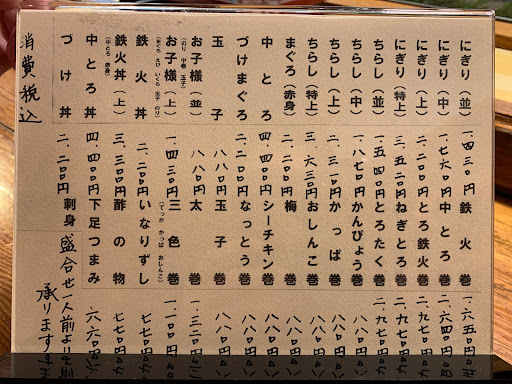 にぎり（並） 一、四三〇円 鉄火巻 一、六五〇円
にぎり（中） 一、七六〇円 中とろ巻 二、六四〇円
にぎり（上） 二、二〇〇円 とろ鉄火巻 二、九七〇
にぎり（特上） 三、五二〇円 ねぎとろ巻 二、九七〇
ちらし（並） 一、五四〇円 とろたく巻 二、九七〇
ちらし（中） 一、八七〇円 かんぴょう巻 八八〇円
ちらし（上） 二、三一〇円 かっぱ巻 八八〇円
ちらし（特上） 三、六三〇円 おしんこ巻 八八〇円
まぐろ（赤身） 二、二〇〇円 梅巻 八八〇円
中とろ 四、四〇〇円 シーチキン巻 八八〇円
づけまぐろ 二、二〇〇円 なっとう巻 八八〇円
玉子 八八〇円 玉子巻 八八〇円
お子様（並） 八八〇円 太巻 一、三二〇円
（のり 中巻 玉子）
お子様（上） 一、四三〇円 三色巻 一、一〇〇円
（まぐろ えび いくら 玉子 のり） （てっか かっぱ おしんこ）
鉄火丼 二、二〇〇円 いなりずし 七七〇円
鉄火丼（上） 三、三〇〇円 酢の物 七七〇円
（中とろ 赤身）
中とろ丼 四、四〇〇円 下足つまみ 六六〇
づけ丼 二、二〇〇円 刺身盛合せ一人前より
消費税込 承ります